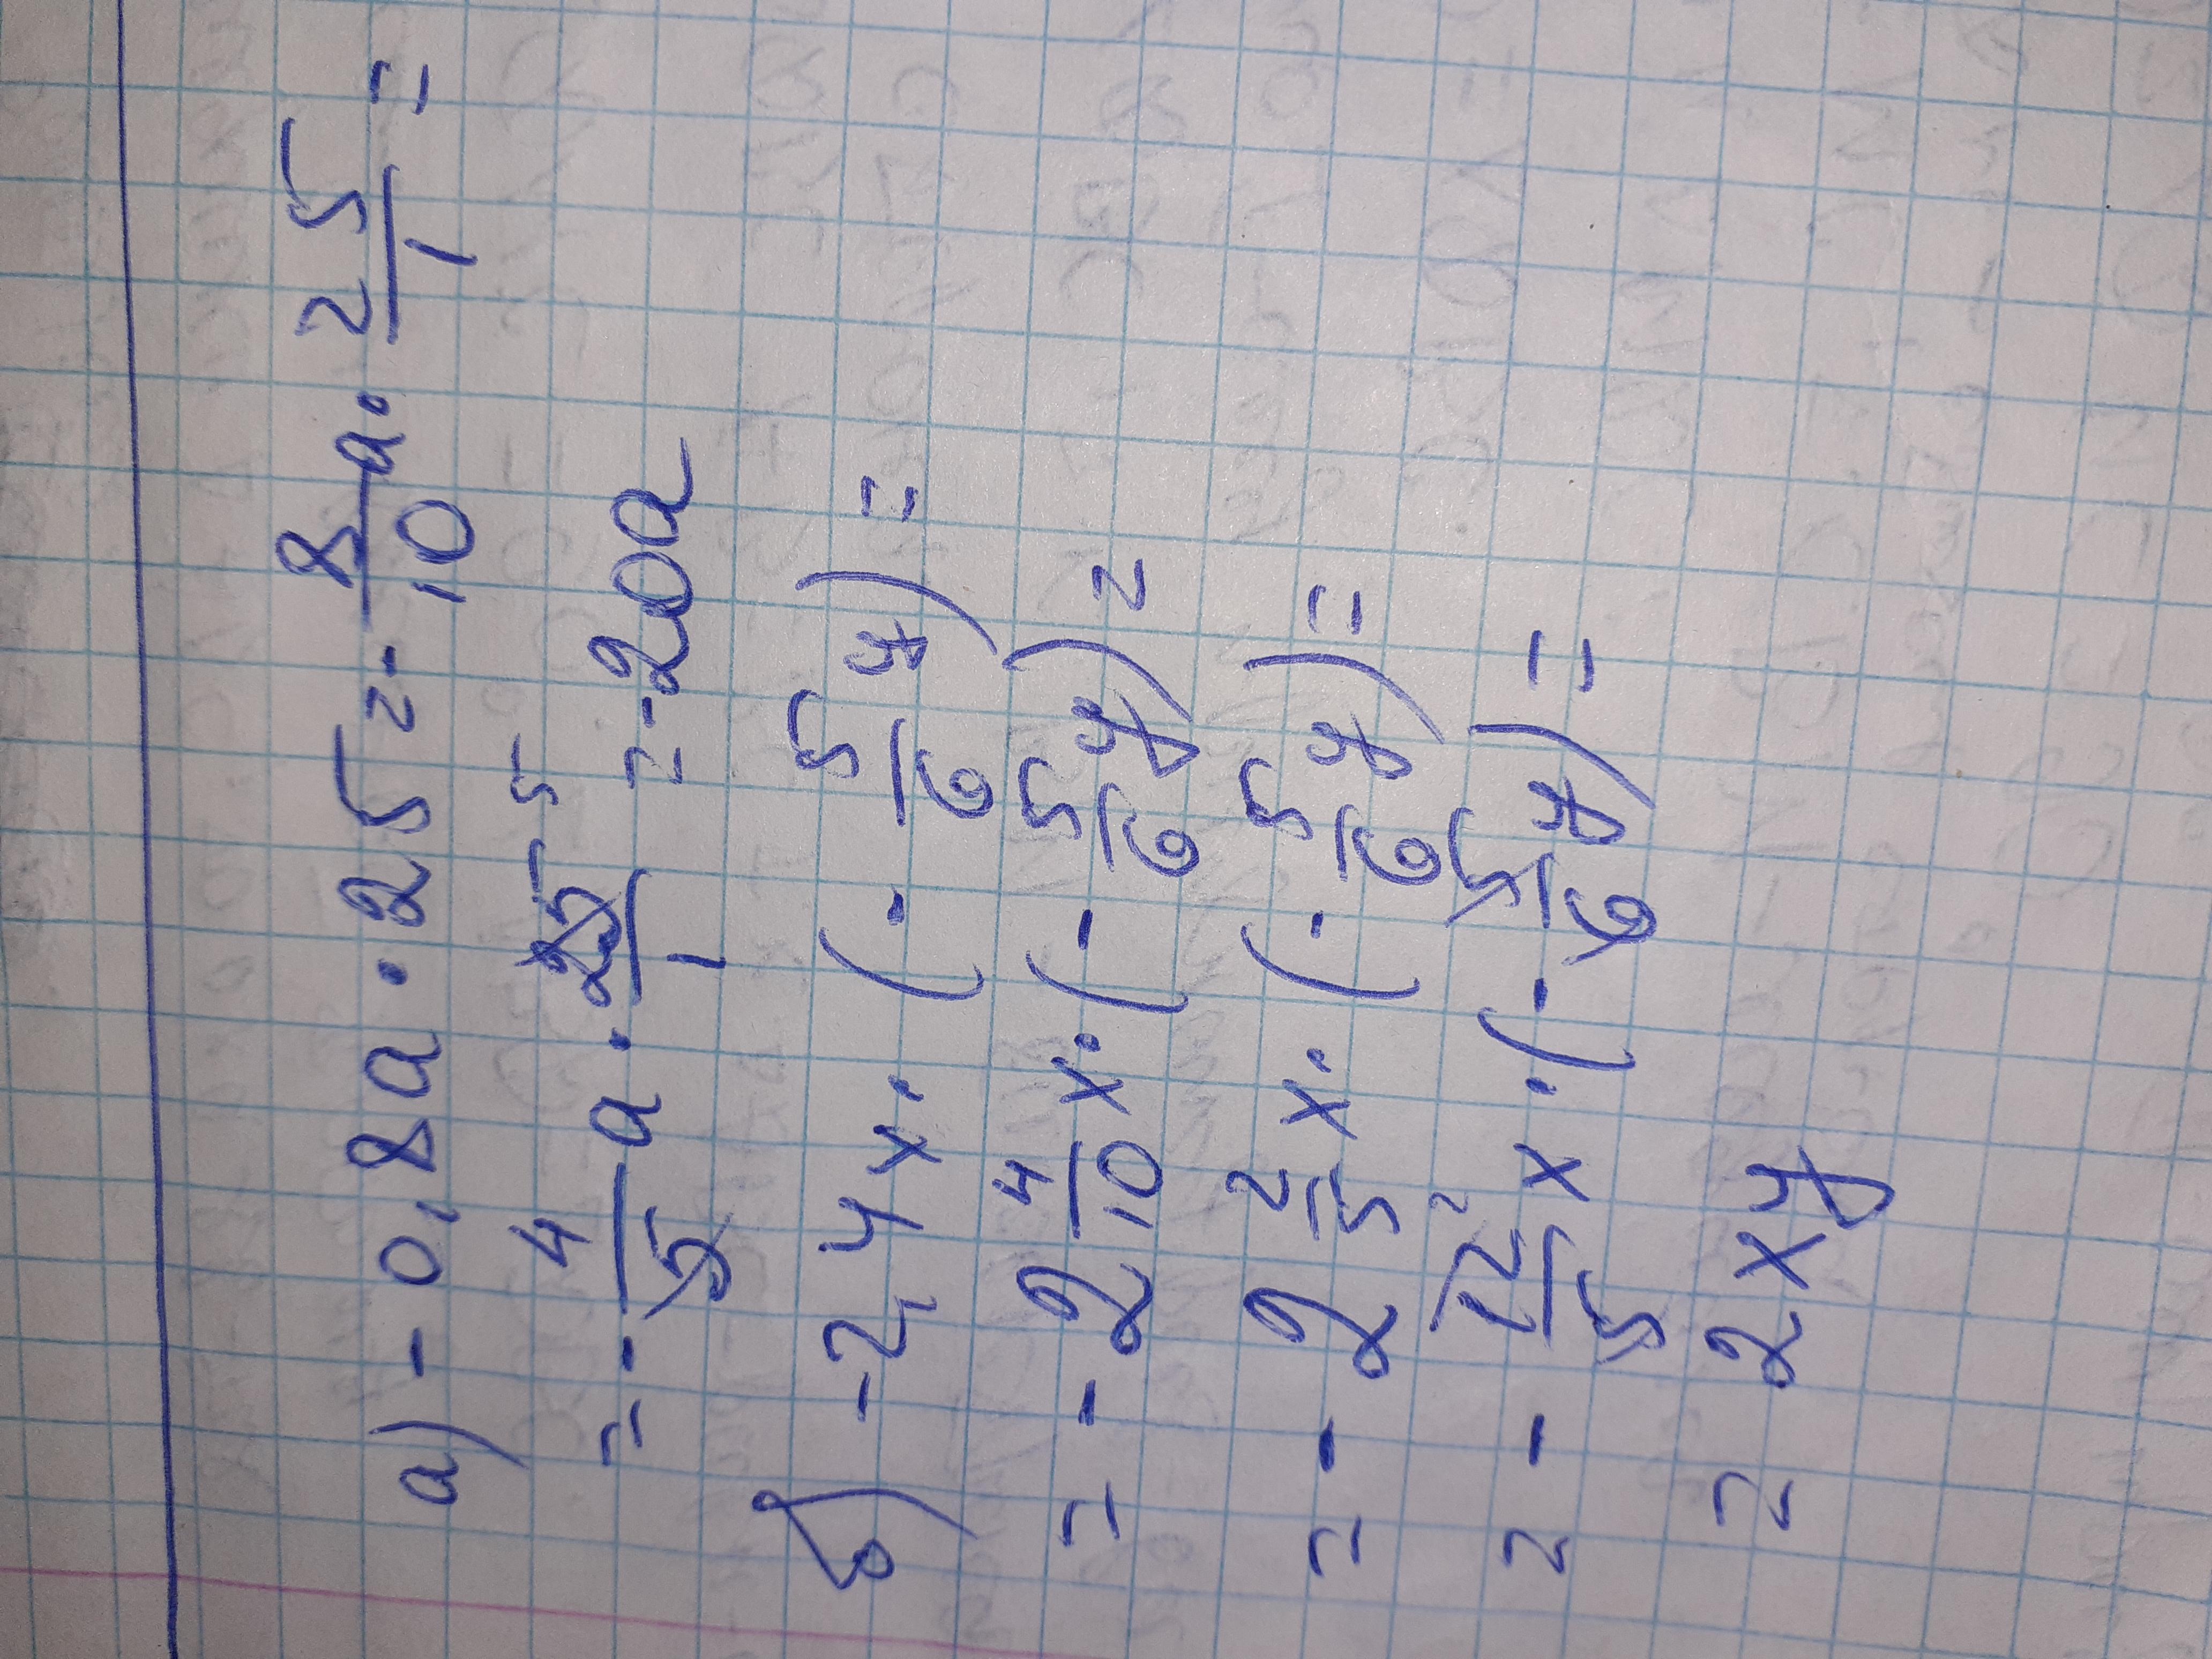 а) - 0,8a · 25 = - 8/10 a · 25/1 =
= - 4/5 a · 25/1 5 = - 20a
б) - 2,4x · (- 5/6 y) =
= - 2 4/10 x · (- 5/6 y) =
= - 2 2/5 x · (- 5/6 y) =
= - 12/5 2 x · (- 5/6 y) =
= 2xy